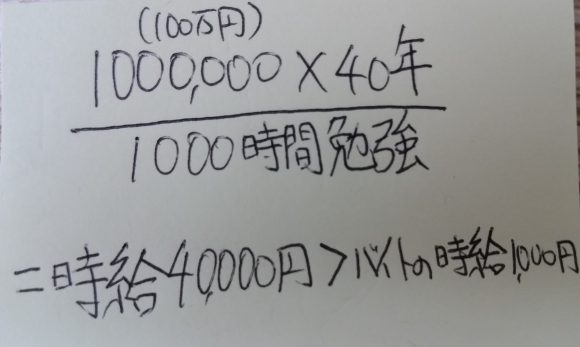 (100万円)
1000,000×40年
1000時間勉強
=時給40,000円>バイトの時給1,000円